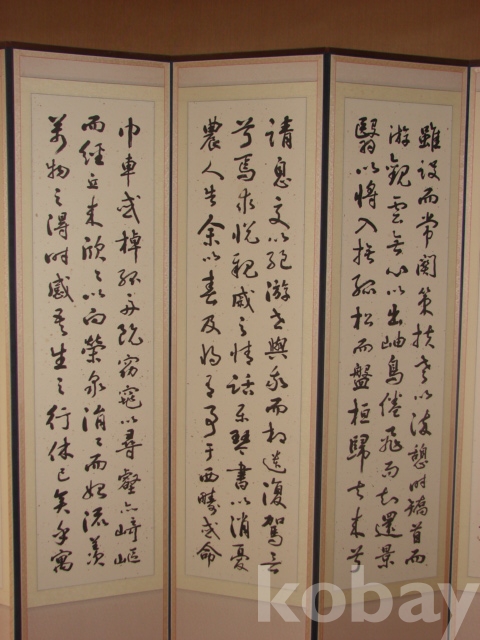 雖設而常関策扶老以流憩時矯首而
游觀雲無心以出岫鳥倦飛而知還景
翳以將入撫孤松而盤桓歸去來兮
請息交以絶游世與我而相遺復駕言
兮焉求悅親戚之情話樂琴書以消憂
農人告余以春及將有事于西疇或命
巾車或棹孤舟既窈窕以尋壑亦崎嶇
而経丘木欣〻以向榮泉涓〻而始流羨
萬物之得時感吾生之行休已矣乎寓
kobay